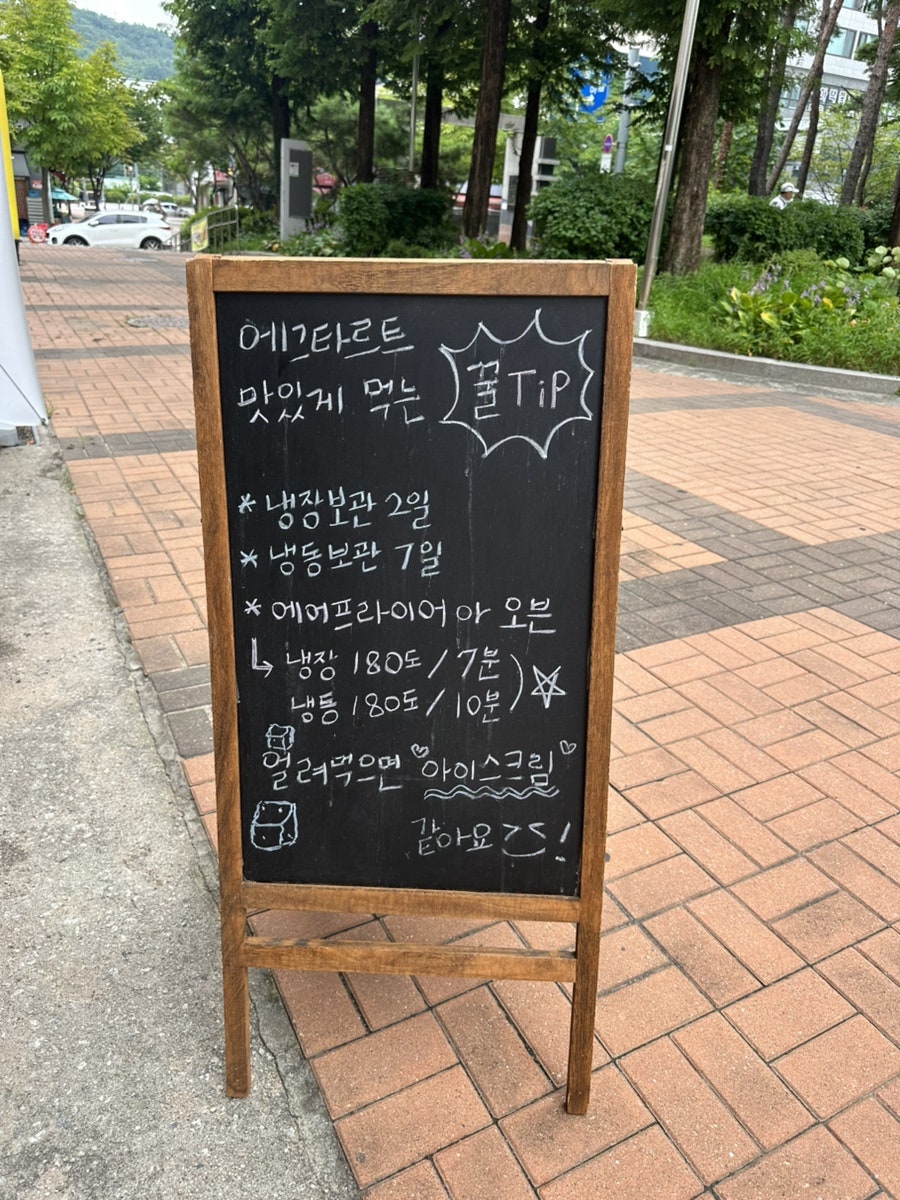 에그타르트
맛있게 먹는 꿀TiP
* 냉장보관 2일
* 냉동보관 7일
* 에어프라이어 or 오븐
↳ 냉장 180도/7분
냉동 180도/10분
얼려먹으면 "아이스크림"
같아요!